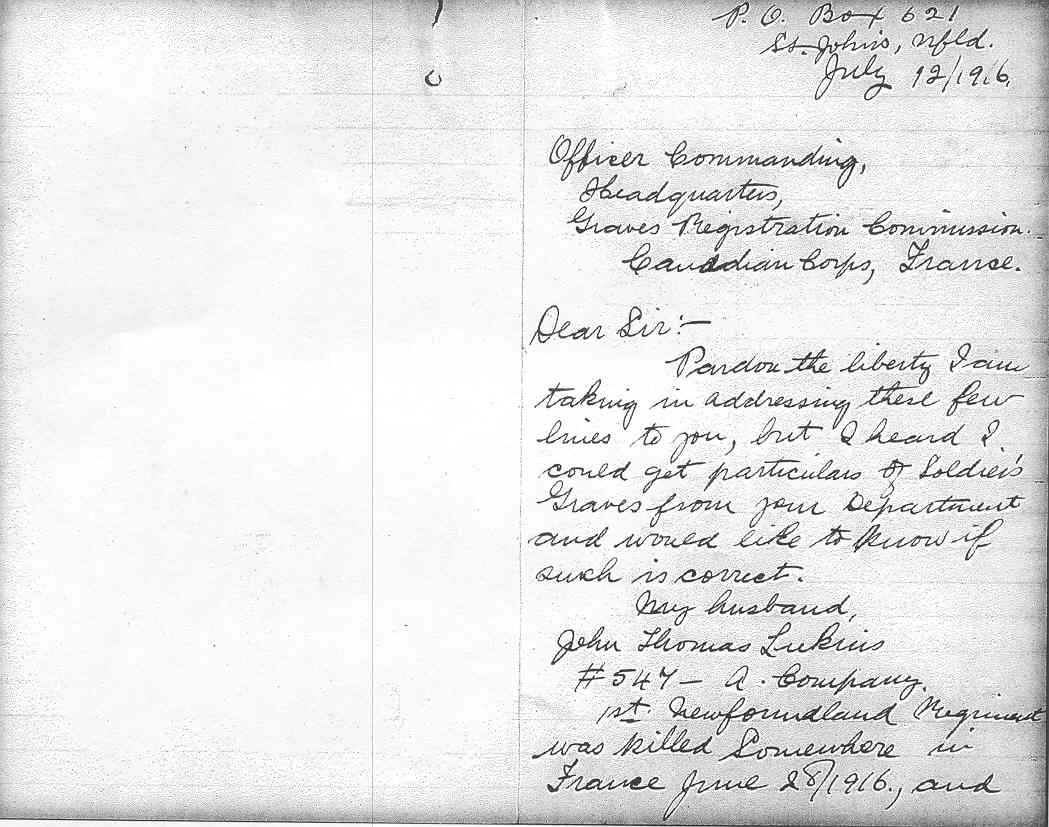 P. O. Box 621
St. John's, Nfld.
July 12/1916.
Officer Commanding,
Headquarters,
Graves Registration Commission.
Canadian Corps, France.
Dear Sir:-
Pardon the liberty I am
taking in addressing these few
lines to you, but I heard I
could get particulars of Soldier's
Graves from your Department
and would like to know if
such is correct.
My husband,
John Thomas Lukins
#547 - A. Company.
1st. Newfoundland Regiment
was killed Somewhere in
France June 28/1916., and